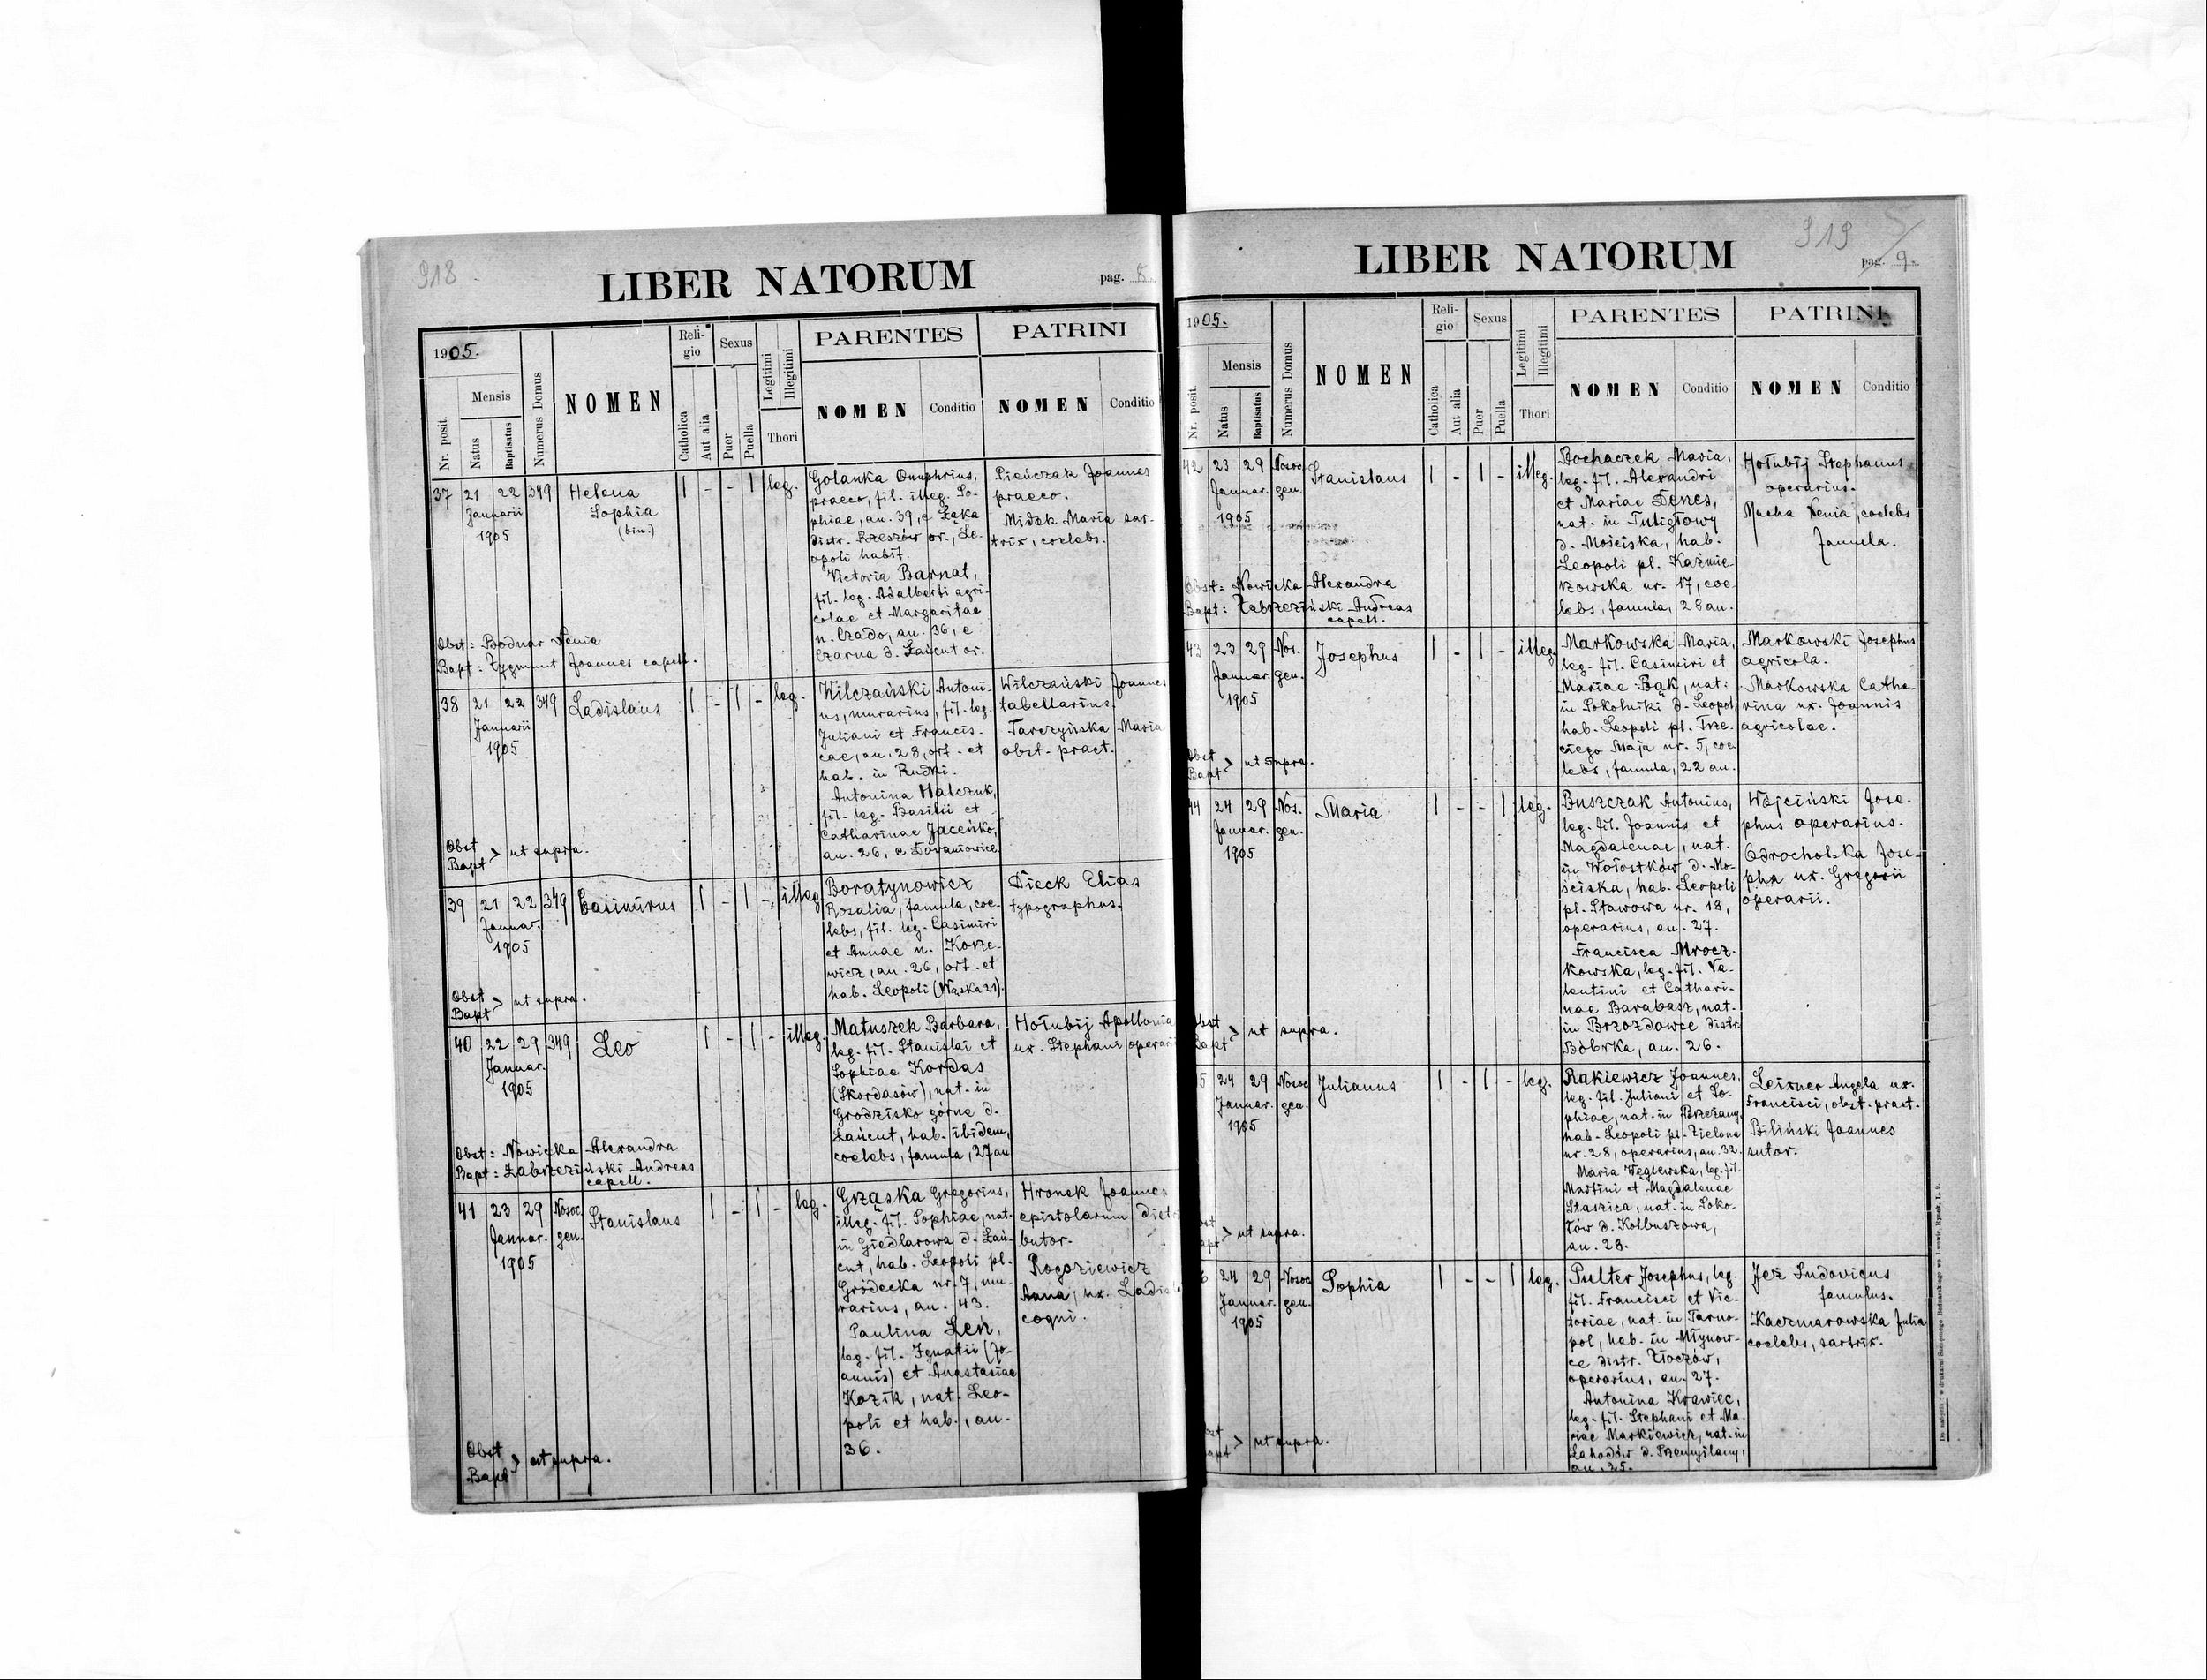 918
LIBER NATORUM
pag. 8.
1905.
Nr. posit.
Mensis
Natus
Baptisatus
Numerus Domus
NOMEN
Reli-
gio
Catholica
Aut alia
Sexus
Puer
Puella
Legitimi
Illegitimi
Thori
PARENTES
NOMEN
Conditio
PATRINI
NOMEN
Conditio
37 21 22 349
Januarii
1905
Helena
Sophia
(bin.)
1 - - 1 leg.
Golanka Onuphrius,
praeco, fil. illeg. So-
phiae, an. 39, e Łąka
distr. Rzeszów or., Le-
opoli habit.
Victoria Barnat,
fil. leg. Adalberti agri-
colae et Margaritae
n. Czado, an. 36, e
Czarna d. Łańcut or.
Pieńczak Joannes
praeco.
Midak Maria sar-
trix, coelebs.
Obst: Bodnar Xenia
Bapt: Zygmunt Joannes capell.
38 21 22 349
Januarii
1905
Ladislaus
1 - 1 - leg.
Wilczański Antoni-
us, murarius, fil. leg.
Juliani et Francis-
cae, an. 28, ort. et
hab. in Rudki.
Antonina Halczuk,
fil. leg. Basilii et
Catharinae Jaceńko,
an. 26, e
Wilczański Joannes
tabellarius.
Tarczyńska Maria
obst. pract.
Obst
Bapt > ut supra.
39 21 22 349
Januar.
1905
Casimirus
1 - 1 - illeg.
Boratynowicz
Rosalia, famula, coe-
lebs, fil. leg. Casimiri
et Annae n. Korze-
wicz, an. 26, ort. et
hab. Leopoli (Wąska 21).
Dieck Elias
typographus.
Obst
Bapt > ut supra.
40 22 29 349
Januar.
1905
Leo
1 - 1 - illeg.
Matuszek Barbara,
leg. fil. Stanislai et
Sophiae Kordas
(Skordasów), nat. in
Grodzisko górne d.
Łańcut, hab. ibidem,
coelebs, famula, 27 an
Hołubij Apollonia
ux. Stephani operari
Obst: Nowicka Alexandra
Bapt: Zabrzeziński Andreas
capell.
41 23 29 Nosoc.
Januar. gen.
1905
Stanislaus
1 - 1 - leg.
Grząska Gregorius,
illeg. fil. Sophiae, nat.
in Giedlarowa d. Łań-
cut, hab. Leopoli pl.
Gródecka nr. 7, mu-
rarius, an. 43.
Paulina Len,
leg. fil. Ignatii (Jo-
annis) et Anastasiae
Kozik, nat. Leo-
poli et hab., an.
36.
Hronek Joannes
epistolarum
butor.
Rogoziewicz
Anna, ux.
cogni.
Obst
Bapt > ut supra.
919
LIBER NATORUM
pag. 9.
1905.
Nr. posit.
Mensis
Natus
Baptisatus
Numerus Domus
NOMEN
Reli-
gio
Catholica
Aut alia
Sexus
Puer
Puella
Legitimi
Illegitimi
Thori
PARENTES
NOMEN
Conditio
PATRINI
NOMEN
Conditio
42 23 29 Nosoc.
Januar. gen.
1905
Stanislaus
1 - 1 - illeg.
Bochaczek Maria,
leg. fil. Alexandri
et Mariae Denes,
nat. in Tuligłowy
d. Mościska, hab.
Leopoli pl. Kazmie-
rzowska nr. 17, coe-
lebs, famula, 28 an.
Hołubij Stephanus
operarius.
Mucha Xenia, coelebs
famula.
Obst: Nowicka Alexandra
Bapt: Zabrzeziński Andreas
capell.
43 23 29 Nos.
Januar. gen.
1905
Josephus
1 - 1 - illeg.
Markowska Maria,
leg. fil. Casimiri et
Mariae Bąk, nat.
in Sokolniki d. Leopol,
hab. Leopoli pl. Trze-
ciego Maja nr. 5, coe-
lebs, famula, 22 an.
Markowski Josephus
agricola.
Markowska Catha-
rina ux. Joannis
agricolae.
Obst
Bapt > ut supra.
44 24 29 Nos.
Januar. gen.
1905
Maria
1 - - 1 leg.
Buszczak Antonius,
leg. fil. Joannis et
Magdalenae, nat.
in Wołostków d. Mo-
ściska, hab. Leopoli
pl. Stawowa nr. 18,
operarius, an. 27.
Francisca Mrocz-
kowska, leg. fil. Va-
lentini et Cathari-
nae Barabasz, nat.
in Brzozdowce distr.
Bóbrka, an. 26.
Wójciński Jose-
phus operarius.
Odrocholska Jose-
pha ux. Gregorii
operarii.
Obst
Bapt > ut supra.
5 24 29 Nosoc.
Januar. gen.
1905
Julianus
1 - 1 - leg.
Rakiewicz Joannes,
leg. fil. Juliani et So-
phiae, nat. in Brzeżany,
hab. Leopoli pl. Zielona
nr. 28, operarius, an. 32.
Maria Węglewska, leg. fil.
Martini et Magdalenae
Staszica, nat. in Soko-
łów d. Kolbuszowa,
an. 28.
Leixner Angela ux.
Francisci, obst. pract.
Biliński Joannes
sutor.
Obst
Bapt > ut supra.
6 24 29 Nosoc.
Januar. gen.
1905
Sophia
1 - - 1 leg.
Pulter Josephus, leg.
fil. Francisci et Vic-
toriae, nat. in Tarno-
pol, hab. in Młynow-
ce distr. Złoczów,
operarius, an. 27.
Antonina Krawiec,
leg. fil. Stephani et Ma-
riae Markiewicz, nat. in
Łahodów d. Przemyślany,
an. 25.
Jeż Ludovicus
famulus.
Kaczmarowska Julia
coelebs, sartrix.
Obst
Bapt > ut supra.
Do nabycia: w drukarni Szczęsnego Bednarskiego we Lwowie, Rynek, L. 9.